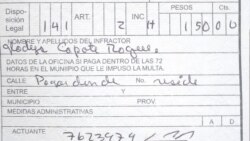 Disposición Legal 141 ART. 2 INC H PESOS 150 00 Cts.
NOMBRE Y APELLIDOS DEL INFRACTOR
Gladys Capote Roque
DATOS DE LA OFICINA SI PAGA DENTRO DE LAS 72
HORAS EN EL MUNICIPIO QUE LE IMPUSO LA MULTA.
CALLE Pagar donde reside
ENTRE Y
MUNICIPIO PROV.
MEDIDAS ADMINISTRATIVAS
A D
ACTUANTE 7623979